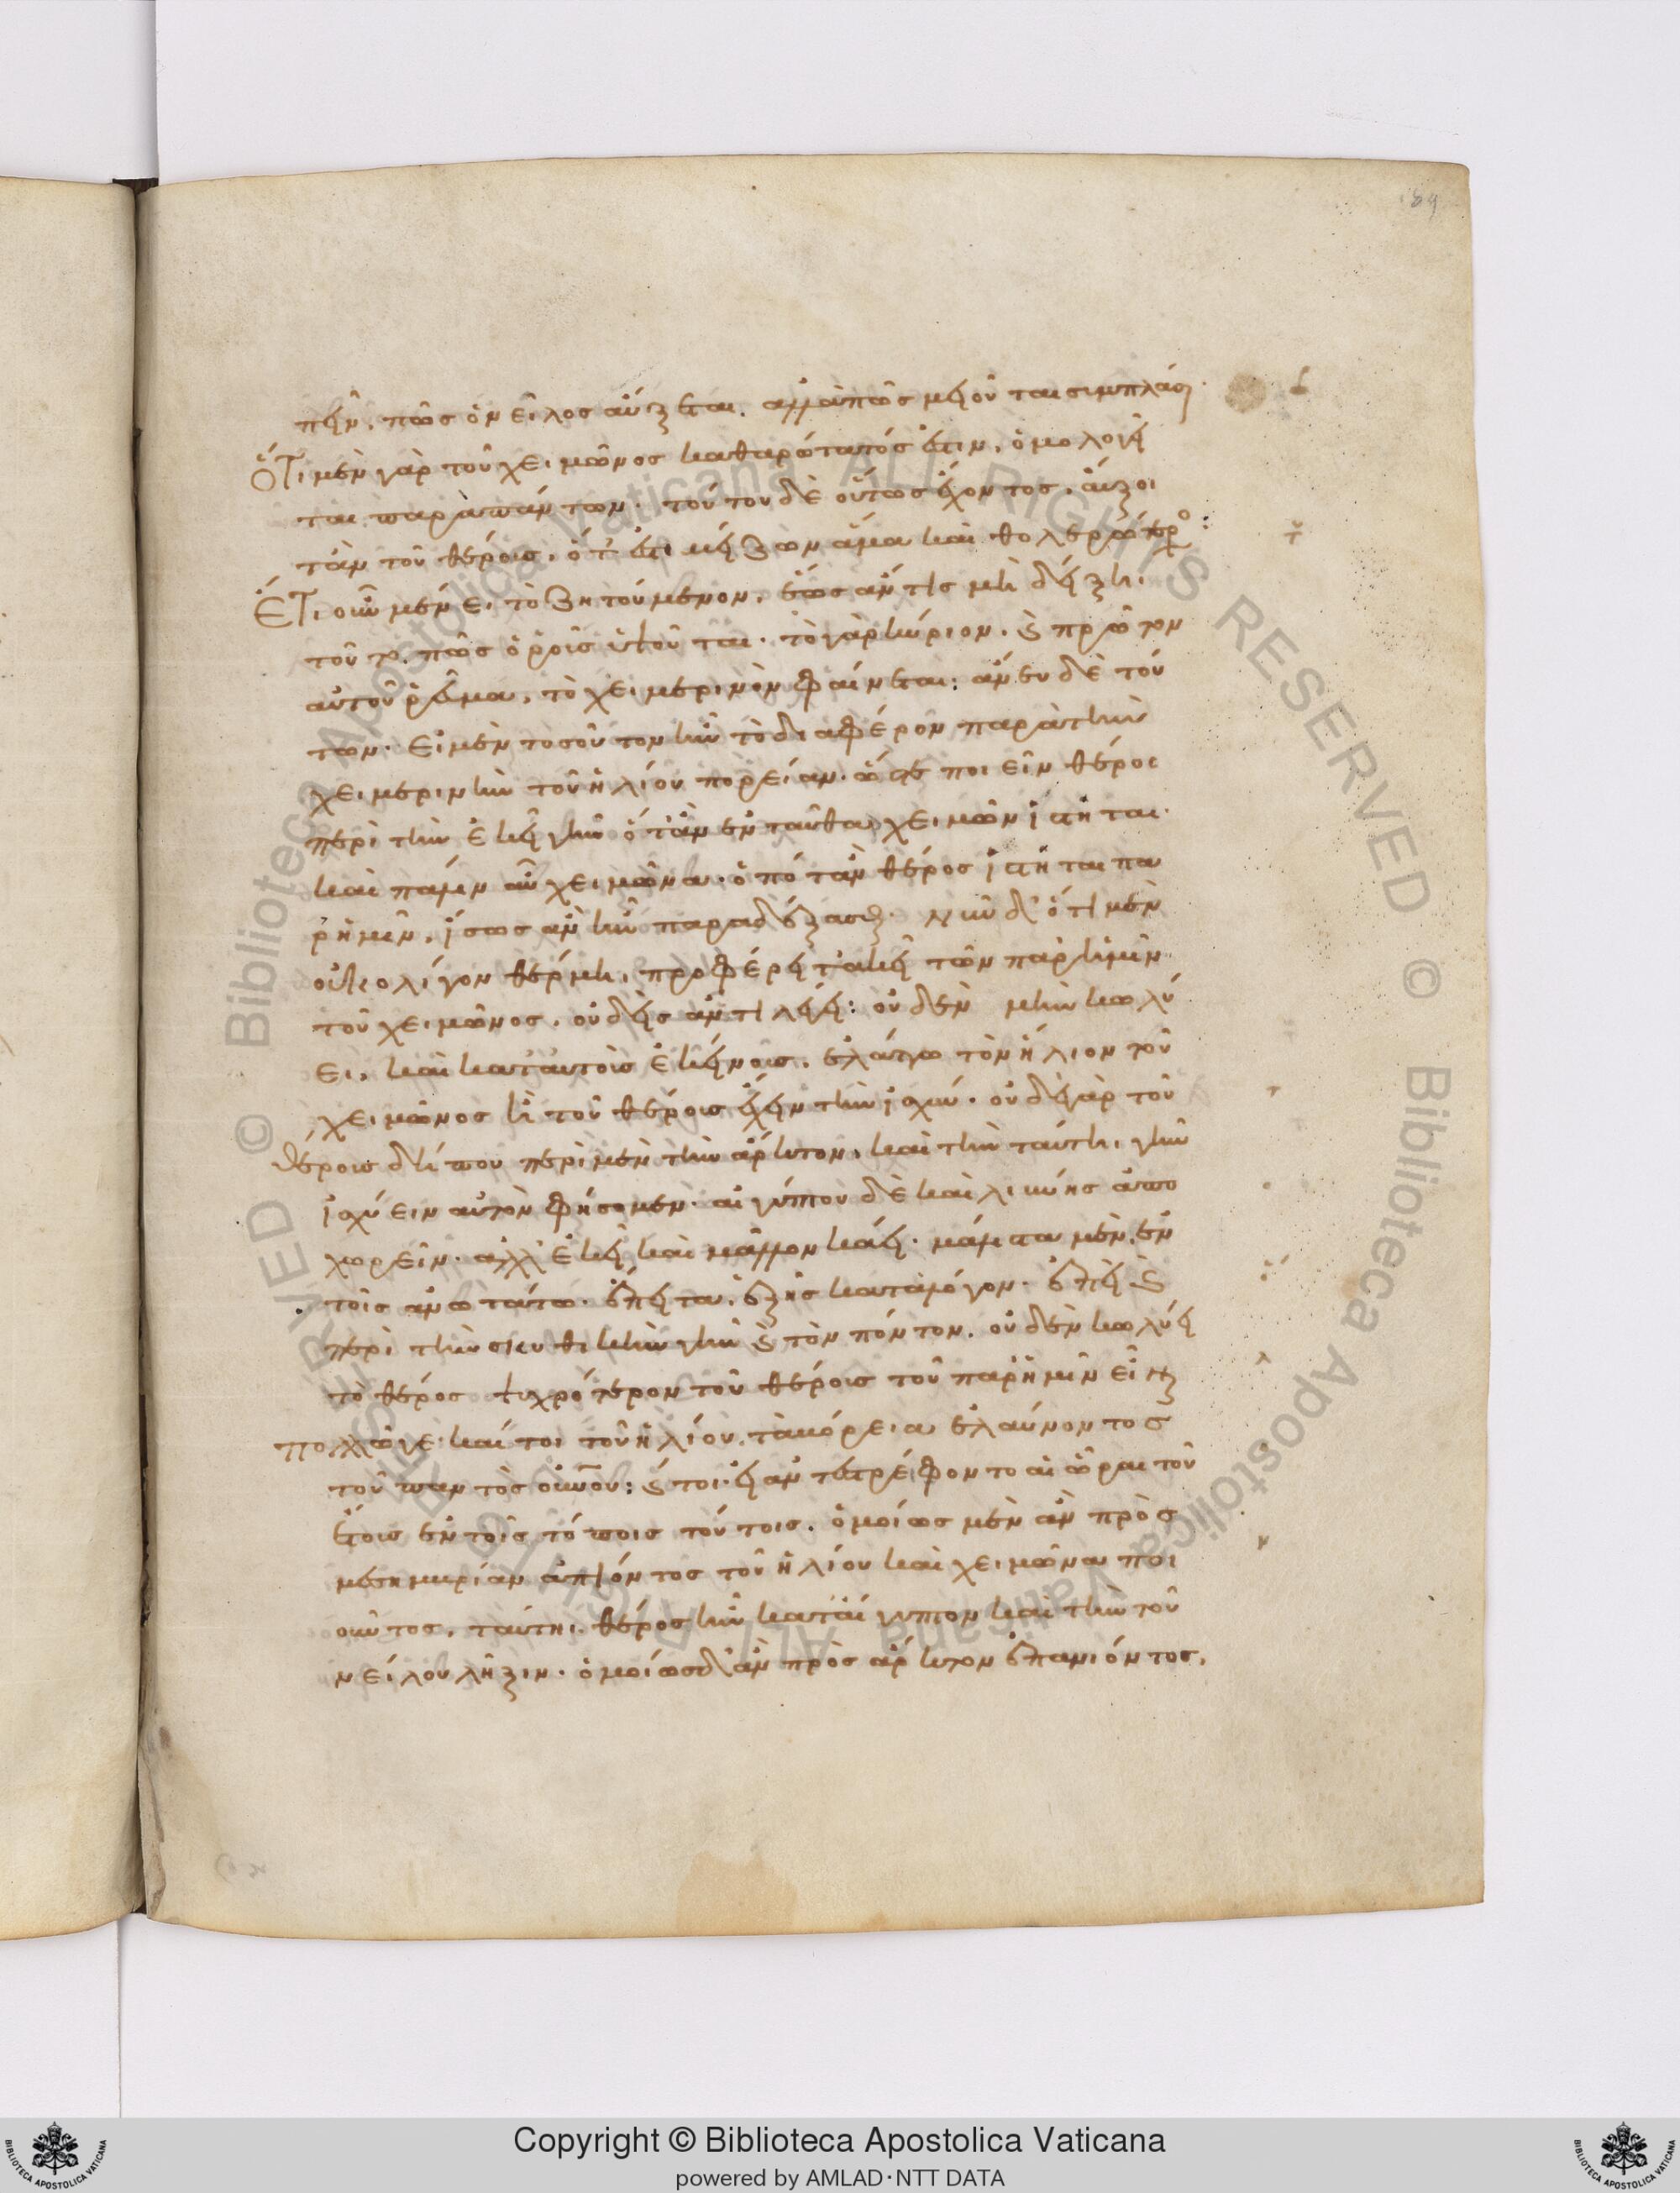 89
πεῖν. πῶς ὁ νεῖλος αὔξεται. ἀλλὰ πῶς μειοῦται συμπλάσει·
Ὅτι μὲν γὰρ τοῦ χειμῶνος καθαρώτατός ἐστιν, ὁμολογεῖ
ται παρὰ πάντων· τούτου δὲ οὕτως ἔχοντος, αὔξοι
τἂν τοῦ θέρους, ὅτ' ἐστὶ μείζων ἅμα καὶ θολερώτερο:
Ἔτι οὖν μένει τὸ ζητούμενον, ἕως ἄν τις μὴ δείξηι.
τοῦτο. πῶς ὁ ῥοῦς ηὑτοῦται· τὸ γὰρ κύριον. καὶ πρῶτον
αὐτοῦ ῥεῦμα, τὸ χειμερινὸν φαίνεται: ἄνευ δὲ τού
των· εἰ μὲν τοσοῦτον ἦν τὸ διαφέρον παρὰ τὴν
χειμερινὴν τοῦ ἡλίου πορείαν· ὥστε ποιεῖν θέρος
περὶ τὴν ἐκεῖ γῆν ὅτ' ἂν ἐνταῦθα χειμὼν ἵστηται·
καὶ πάλιν αὖ χειμῶνα· ὁπόταν θέρος ἵστηται πα
ρ' ἡμῖν, ἴσως ἂν ἦν παραδέξασθαι· νῦν δ' ὅτι μὲν
οὐκ ὀλίγον θέρμηι, προφέρει τἀκεῖ τῶν παρ' ἡμῖν
τοῦ χειμῶνος, οὐδεὶς ἀντιλέγει: οὐδὲν μὴν κωλύ
ει, καὶ κατ' αὐτοὺς ἐκείνους, ἐλάττω τὸν ἥλιον τοῦ
χειμῶνος ἢ τοῦ θέρους ἔχειν τὴν ἰσχύν· οὐδὲ γὰρ τοῦ
θέρους δήπου περὶ μὲν τὴν ἄρκτον, καὶ τὴν ταύτηι γῆν
ἰσχύειν αὐτὸν φήσομεν· αἰγύπτου δὲ καὶ λιβύης ἀπο
χωρεῖν· ἀλλ' ἐκεῖ καὶ μᾶλλον κάει· μάλιστα μὲν, ἐν
τοῖς ἀνωτάτω· ἔπειτα, ἑξῆς κατὰ λόγον· ἐπεὶ καὶ
περὶ τὴν σκυθικὴν γῆν καὶ τὸν πόντον, οὐδὲν κωλύει
τὸ θέρος ψυχρότερον τοῦ θέρους τοῦ παρ' ἡμῖν εἶναι
πολλῶι γε καίτοι τοῦ ἡλίου, τὰ βόρεια ἐλαύνοντος
τοῦ παντὸς οὐνοῦ: καίτοι· εἰ ἀντεστρέφοντο αἱ ὧραι τοῦ
ἔτους ἐν τοῖς τόποις τούτοις. ὁμοίως μὲν ἂν πρὸς
μεσημβρίαν ἀπιόντος τοῦ ἡλίου καὶ χειμῶνα ποι
οῦντος, ταύτηι. θέρος ἦν κατ' αἴγυπτον καὶ τὴν τοῦ
νείλου λῆξιν· ὁμοίως δ' ἂν πρὸς ἄρκτον ἐπανιόντος,
Copyright © Biblioteca Apostolica Vaticana
powered by AMLAD·NTT DATA